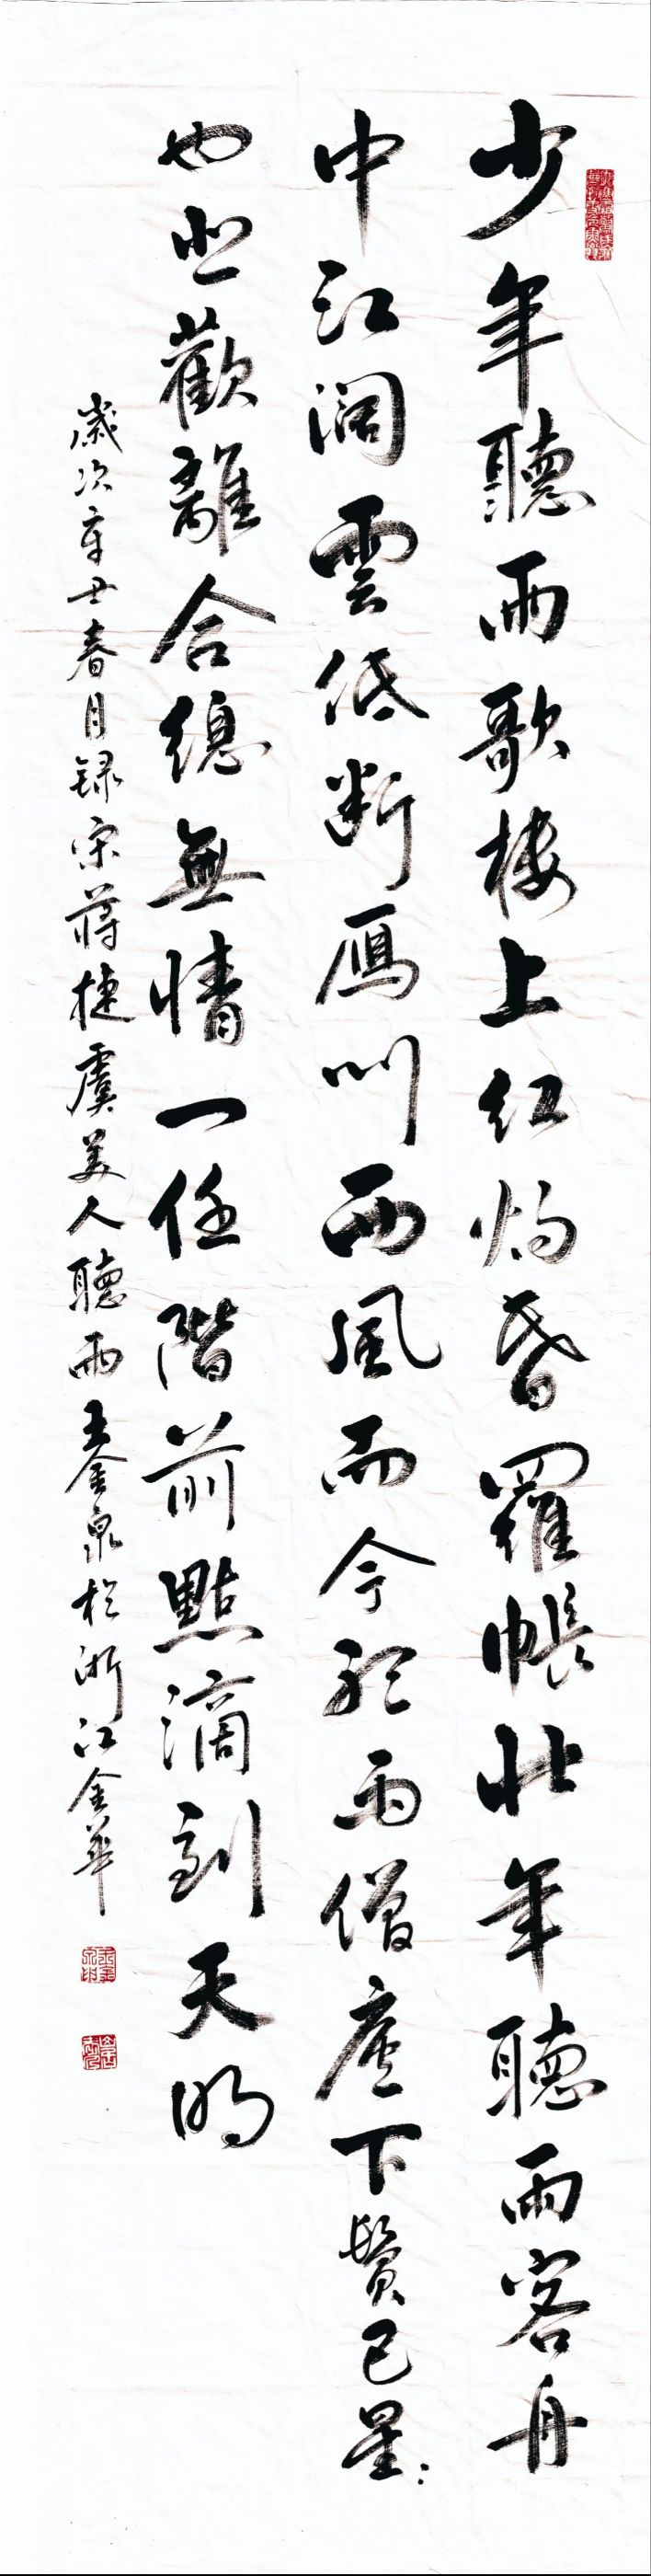 少年聽雨歌樓上紅燭昏羅帳壯年聽雨客舟
中江濶雲低断鴈叫西風而今聽雨僧廬下鬢已星:
也悲歡離合總無情一任階前點滴到天明
歲次辛丑春月録宋蔣捷虞美人聽雨王金泉於浙江金華